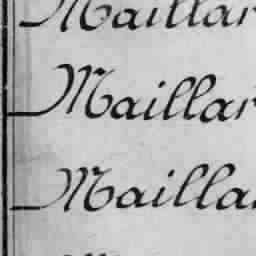 Maillar
Maillar
Mailla